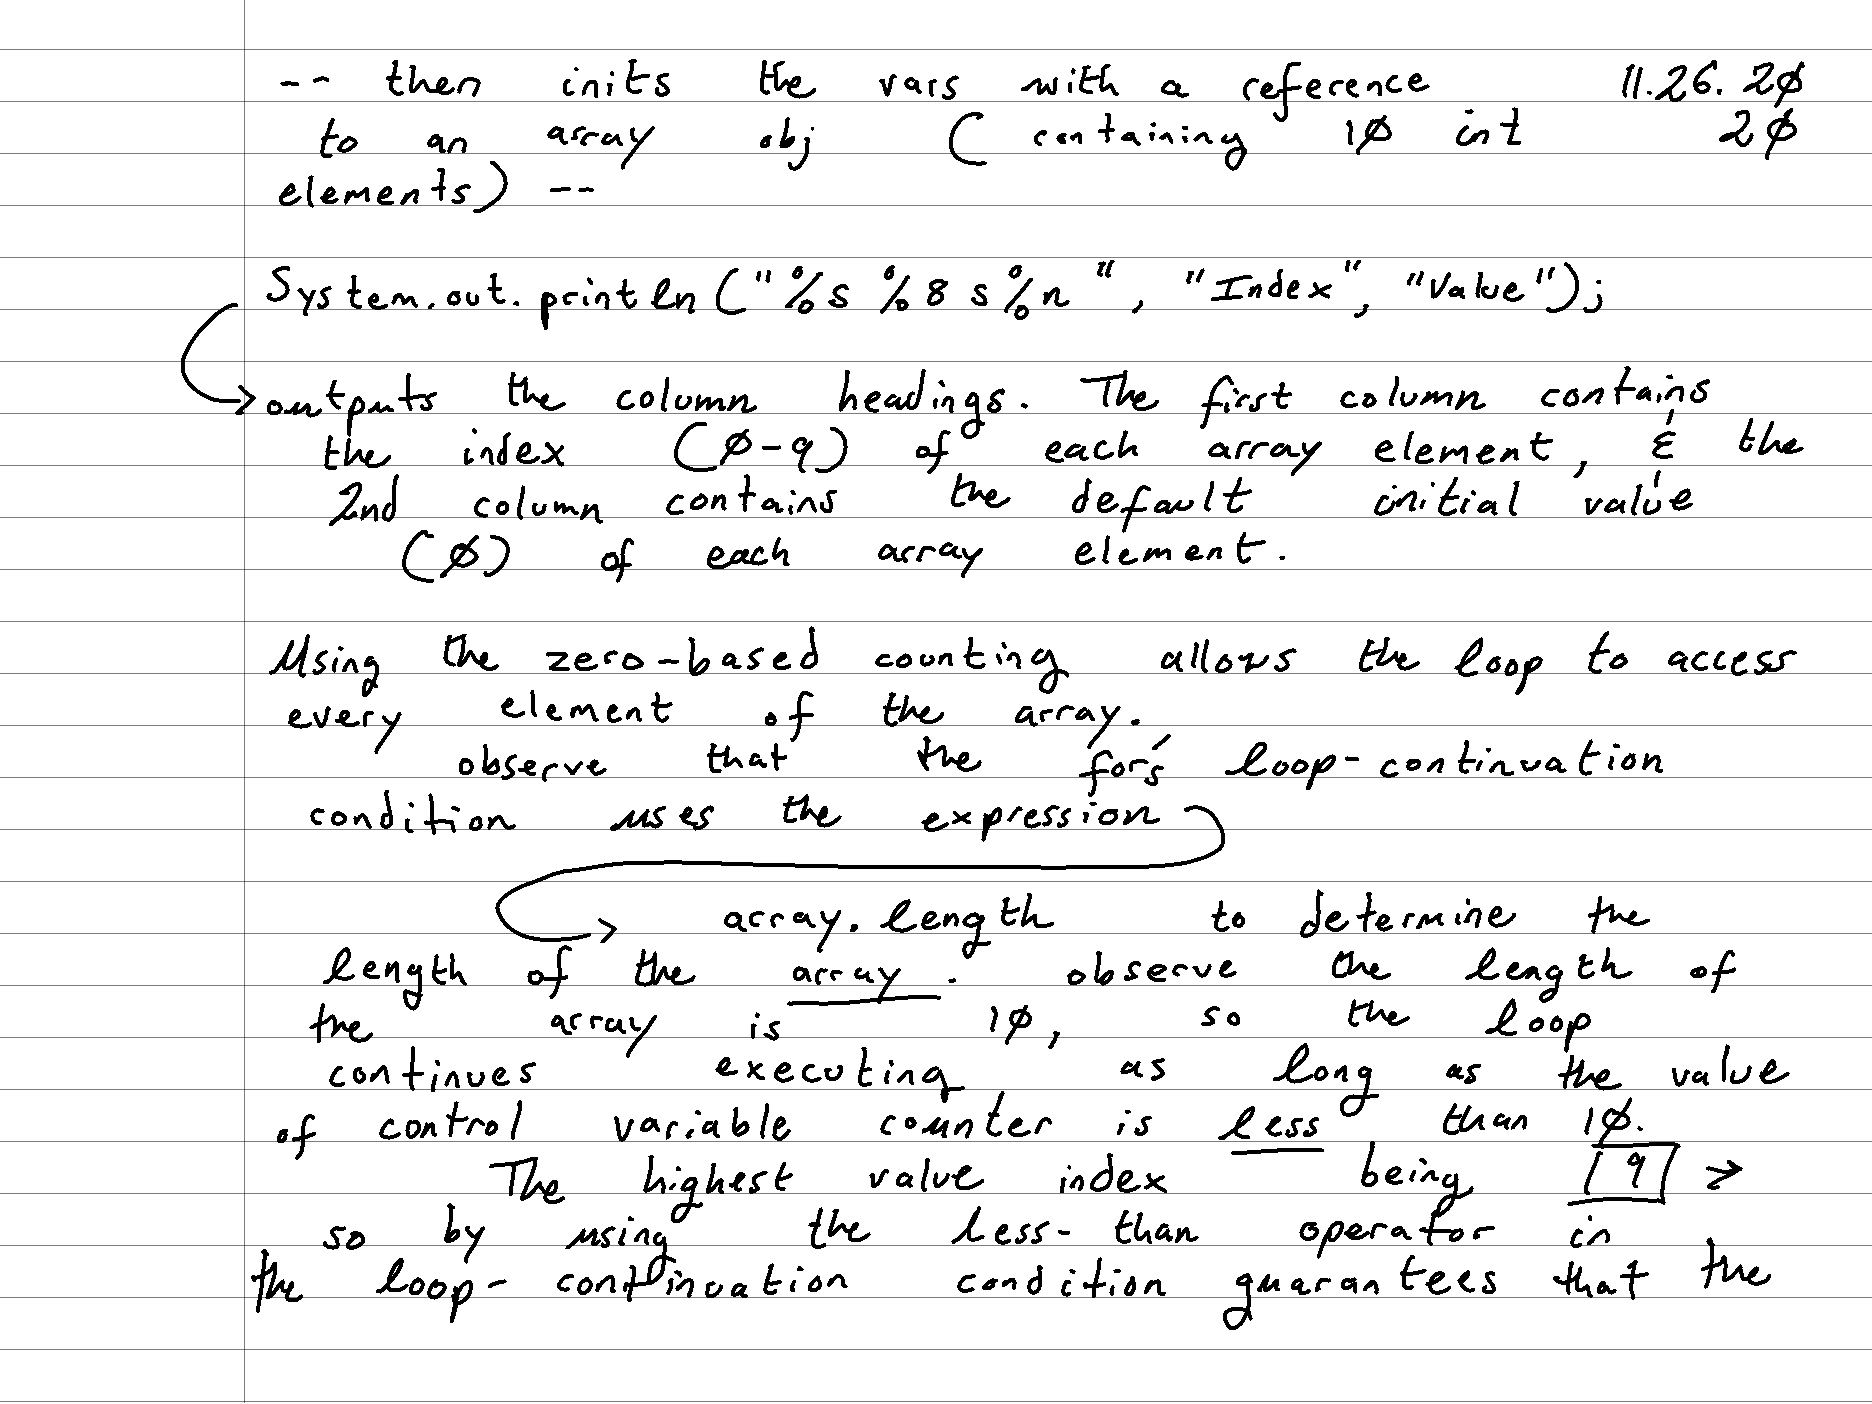 -- then inits the vars with a reference 11.26.2Ø
to an array obj (containing 1Ø int 2Ø
elements) --
System.out.println("%s %8s%n", "Index", "Value");
outputs the column headings. The first column contains
the index (Ø-9) of each array element, & the
2nd column contains the default initial value
(Ø) of each array element.
Using the zero-based counting allows the loop to access
every element of the array.
observe that the for's loop-continuation
condition uses the expression
array.length to determine the
length of the array. observe the length of
the array is 1Ø, so the loop
continues executing as long as the value
of control variable counter is less than 1Ø.
The highest value index being 9 >
so by using the less-than operator in
the loop-continuation condition guarantees that the